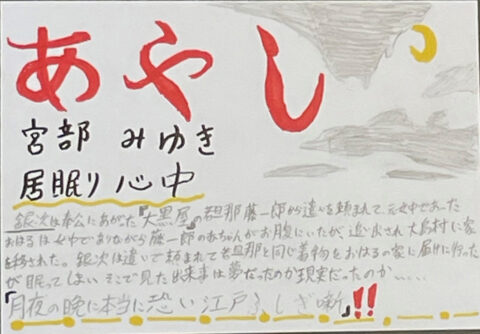 あやし
宮部 みゆき
居眠り心中
銀次は奉公にあがった『大黒屋』の旦那藤一郎から遣いを頼まれて、元女中であった
おはるは女中でありながら藤一郎の赤ちゃんがお腹にいたが、追い出され大島村に家
を移された。銀次は遣いで頼まれて若旦那と同じ着物をおはるの家に届けに行った
が眠ってしまい、そこで見た出来事は夢だったのか現実だったのか……
『月夜の晩に本当に恐い江戸ふしぎ噺』!!